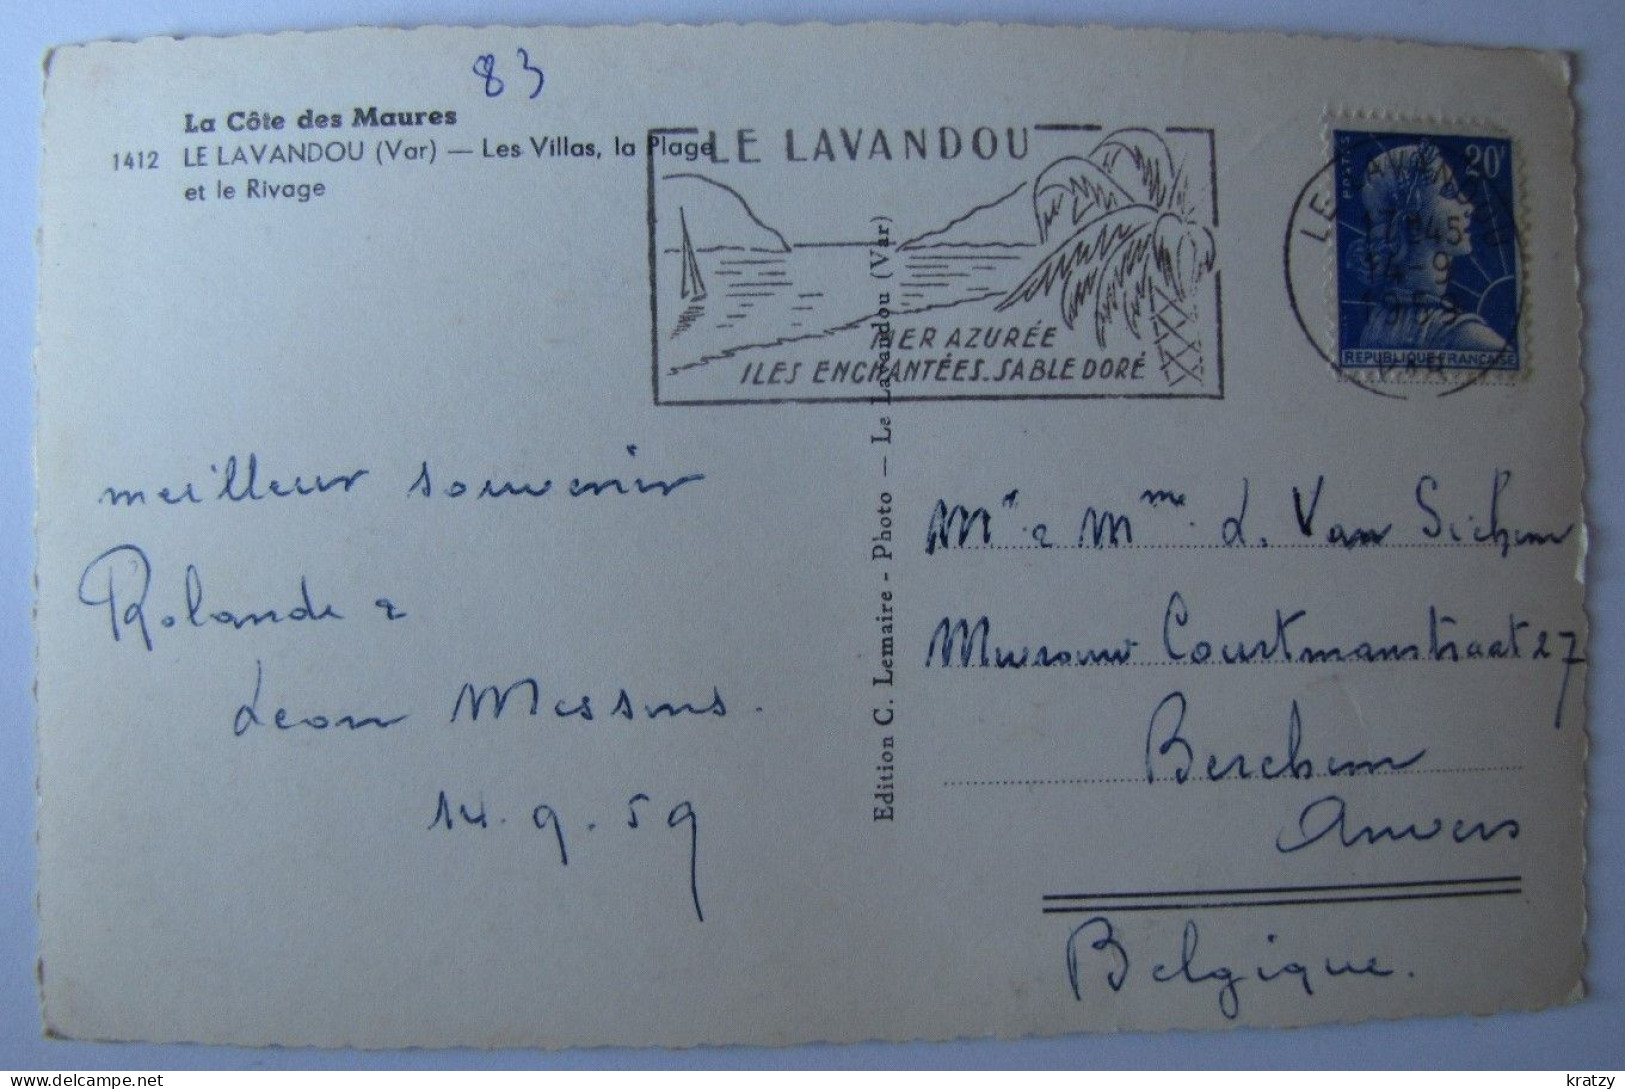 83
La Côte des Maures
1412 LE LAVANDOU (Var) — Les Villas, la Plage
et le Rivage
LE LAVANDOU
MER AZURÉE
ILES ENCHANTÉES. SABLE DORÉ
POSTES
20F
LE LAVANDOU
17H45
14-9
1959
VAR
REPUBLIQUE FRANÇAISE
meilleur souvenir
Rolande &
Leon Messens.
14.9.59
Edition C. Lemaire - Photo — Le Lavandou (Var)
Mr & Mme L. Van Sichem
Courtmanstraat 27
Berchem
Anvers
Belgique.
kratzy